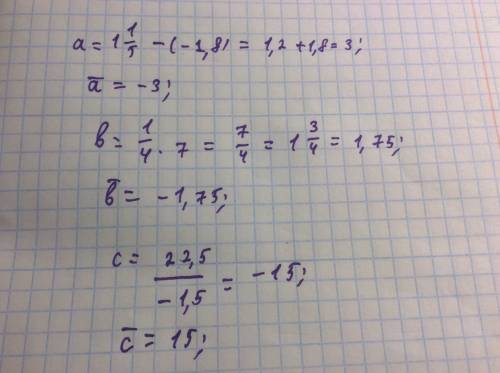 a = 1 1/5 - (-1,8) = 1,2 + 1,8 = 3;
a̅ = -3;
b = 1/4 · 7 = 7/4 = 1 3/4 = 1,75;
b̅ = -1,75;
c = 22,5/-1,5 = -15;
c̅ = 15;